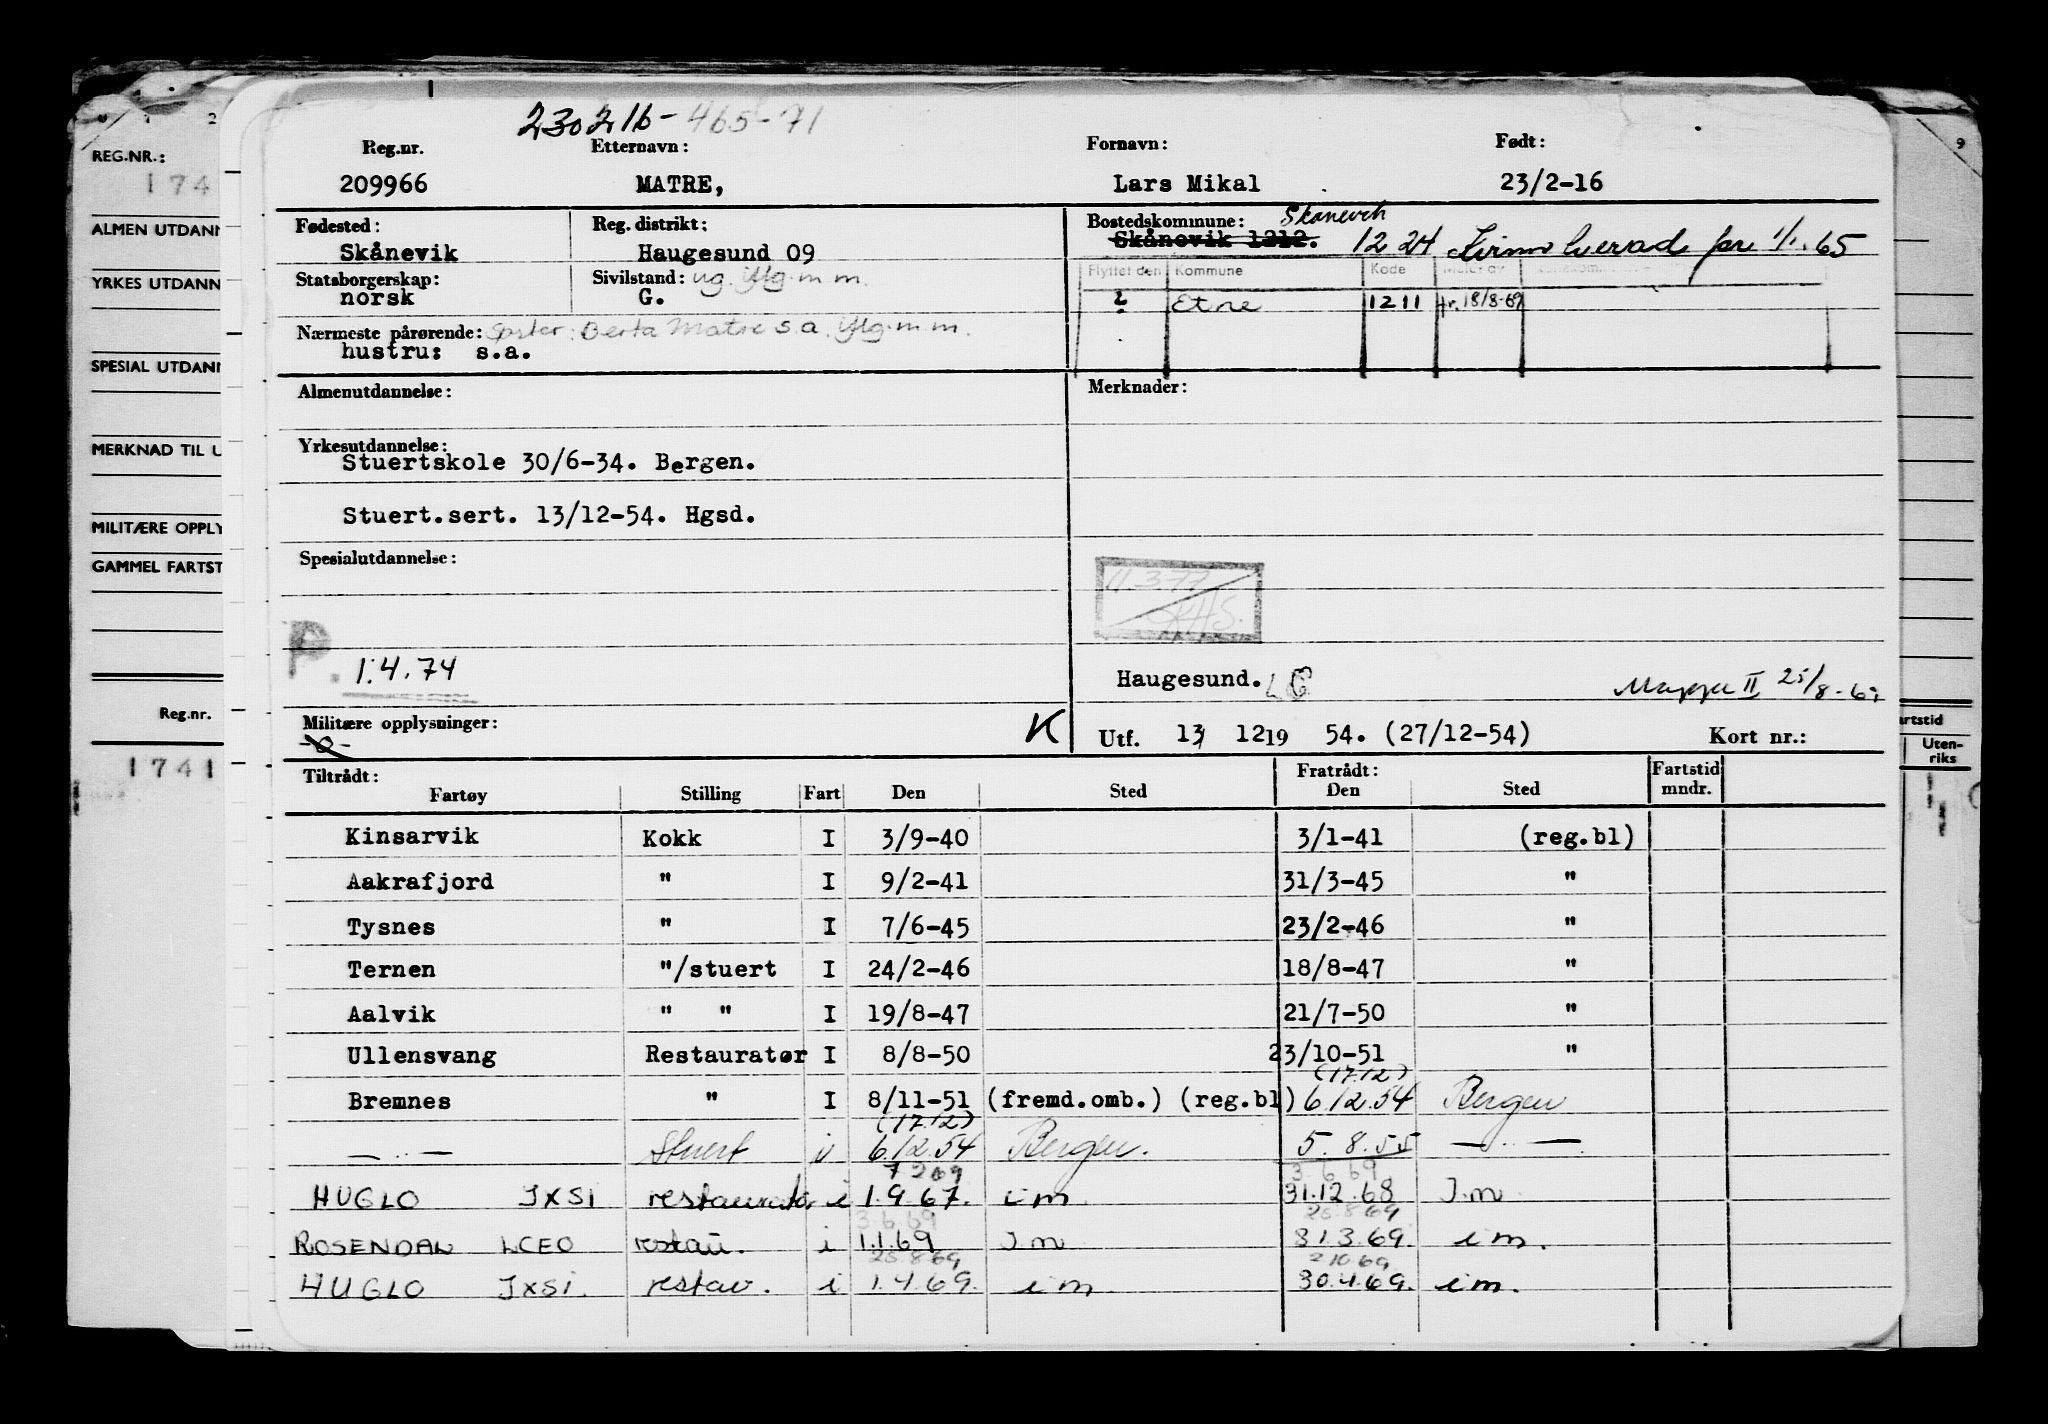 230216-465-71
Reg.nr. Etternavn: Fornavn: Født:
209966 MATRE, Lars Mikal 23/2-16
Fødested: Reg. distrikt: Bostedskommune: Skånevik
Skånevik Haugesund 09 Skånevik 1212. 1224 Kvinnherad fra 1/1.65
Statsborgerskap: Sivilstand: ug. Mg. m m. Flyttet den Kommune Kode
norsk G. ? Etne 1211 fr. 18/8-69
Nærmeste pårørende: Søster: Berta Matre s.a. Mg. m m.
hustru: s.a.
Almenutdannelse: Merknader:
Yrkesutdannelse:
Stuertskole 30/6-34. Bergen.
Stuert.sert. 13/12-54. Hgsd.
Spesialutdannelse:
11.3.77
SKHS.
P. 1.4.74
Haugesund. Mappe II 25/8-69
Militære opplysninger: K
-o-
Utf. 13 12 19 54. (27/12-54) Kort nr.:
Tiltrådt: Fratrådt: Fartstid
Fartøy Stilling Fart Den Sted Den Sted mndr.
Kinsarvik Kokk I 3/9-40 3/1-41 (reg.bl)
Aakrafjord " I 9/2-41 31/3-45 "
Tysnes " I 7/6-45 23/2-46 "
Ternen "/stuert I 24/2-46 18/8-47 "
Aalvik " " I 19/8-47 21/7-50 "
Ullensvang Restauratør I 8/8-50 23/10-51 "
(17.12)
Bremnes " I 8/11-51 (fremd.omb.) (reg.bl) 6.12.54 Bergen
(17.12)
— " — Stuert i 6.12.54 Bergen. 5.8.55 — " —
7 2 69 3.6.69
HUGLO JXSI restauratør i 1.9.67. i m 31.12.68 I m
3.6.69 25.8.69
ROSENDAL LCEO restau. i 1.1.69 I m 31.3.69. i m.
25.8.69 2.10.69
HUGLO JXSI. restau. i 1.4.69. i m 30.4.69. i m.
REG.NR.:
174
ALMEN UTDANN
YRKES UTDANN
SPESIAL UTDANN
MERKNAD TIL U
MILITÆRE OPPLY
GAMMEL FARTST
Reg.nr.
1741
9
artstid
Uten-
riks